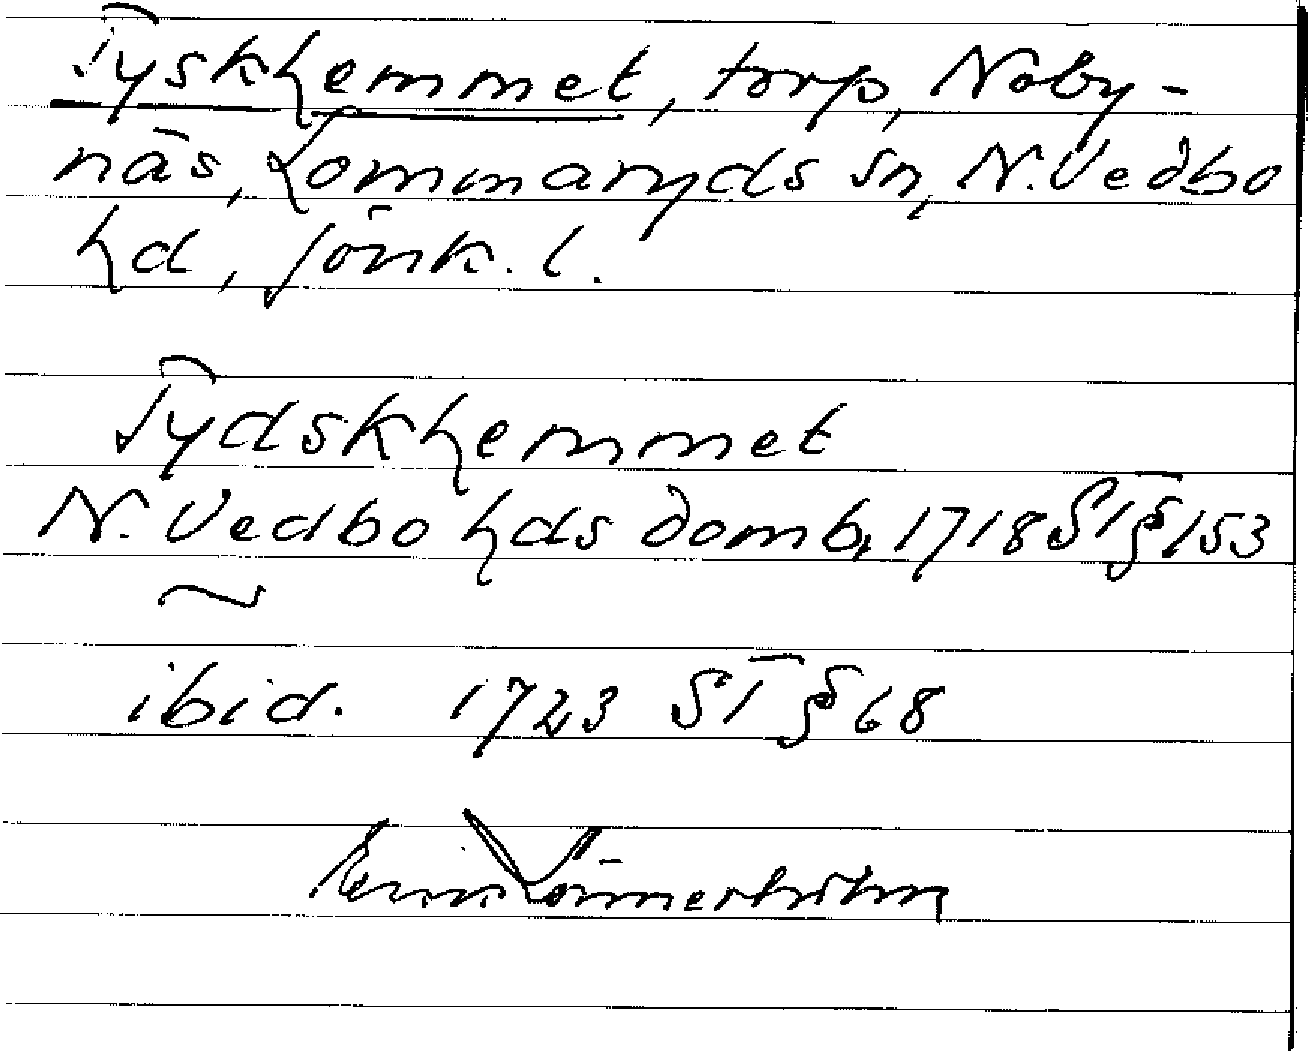 Tyskhemmet, torp, Noby-
näs, Lommaryds sn, N. Vedbo
hd, Jönk. l.
Tydskhemmet
N. Vedbo hds domb. 1718 ST § 153
~
ibid. 1723 ST § 68
Erik Lönnerholm